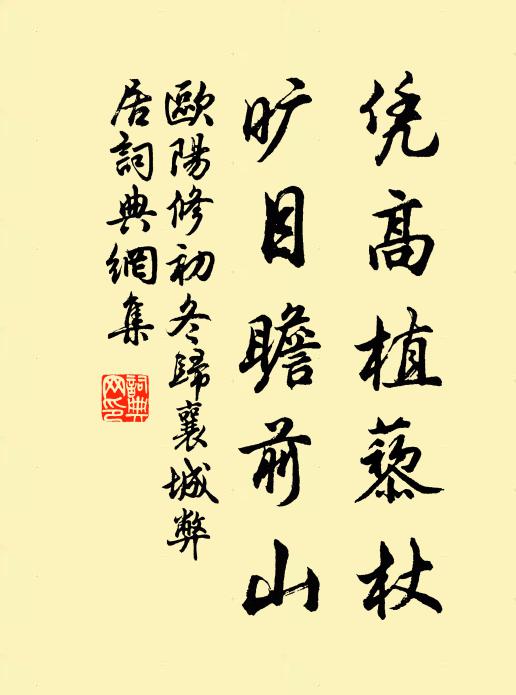 凭高植藜杖
旷目瞻前山
歐陽修初冬歸襄城弊
居詞典網集
詞典
网印